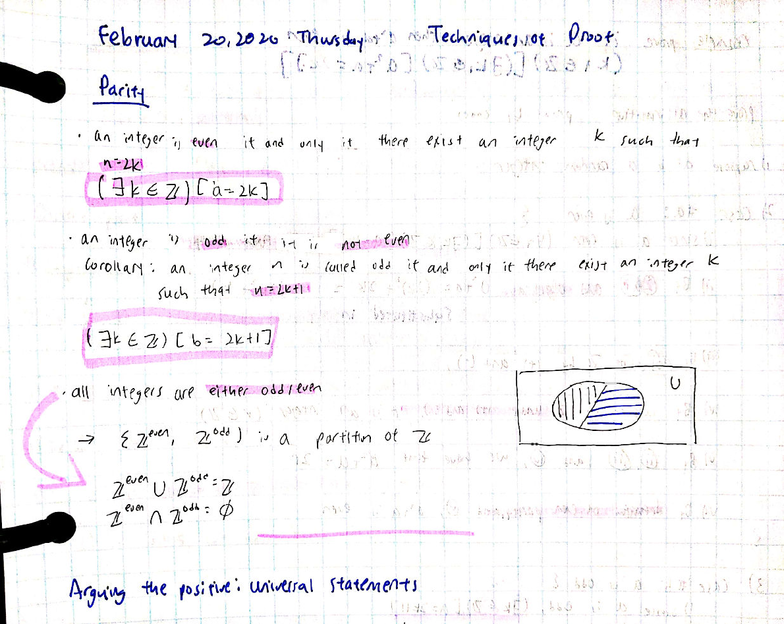 February 20, 2020 Thursday Techniques of Proof
Parity
· an integer is even if and only if there exist an integer k such that
n=2k
(∃k ∈ ℤ) [a=2k]
· an integer is odd if it is not even
Corollary: an integer n is called odd if and only if there exist an integer k
such that n=2k+1
(∃k ∈ ℤ) [b= 2k+1]
· all integers are either odd/even
→ {ℤ^even, ℤ^odd} is a partition of ℤ
U
ℤ^even ∪ ℤ^odd = ℤ
ℤ^even ∩ ℤ^odd = ∅
Arguing the positive: universal statements